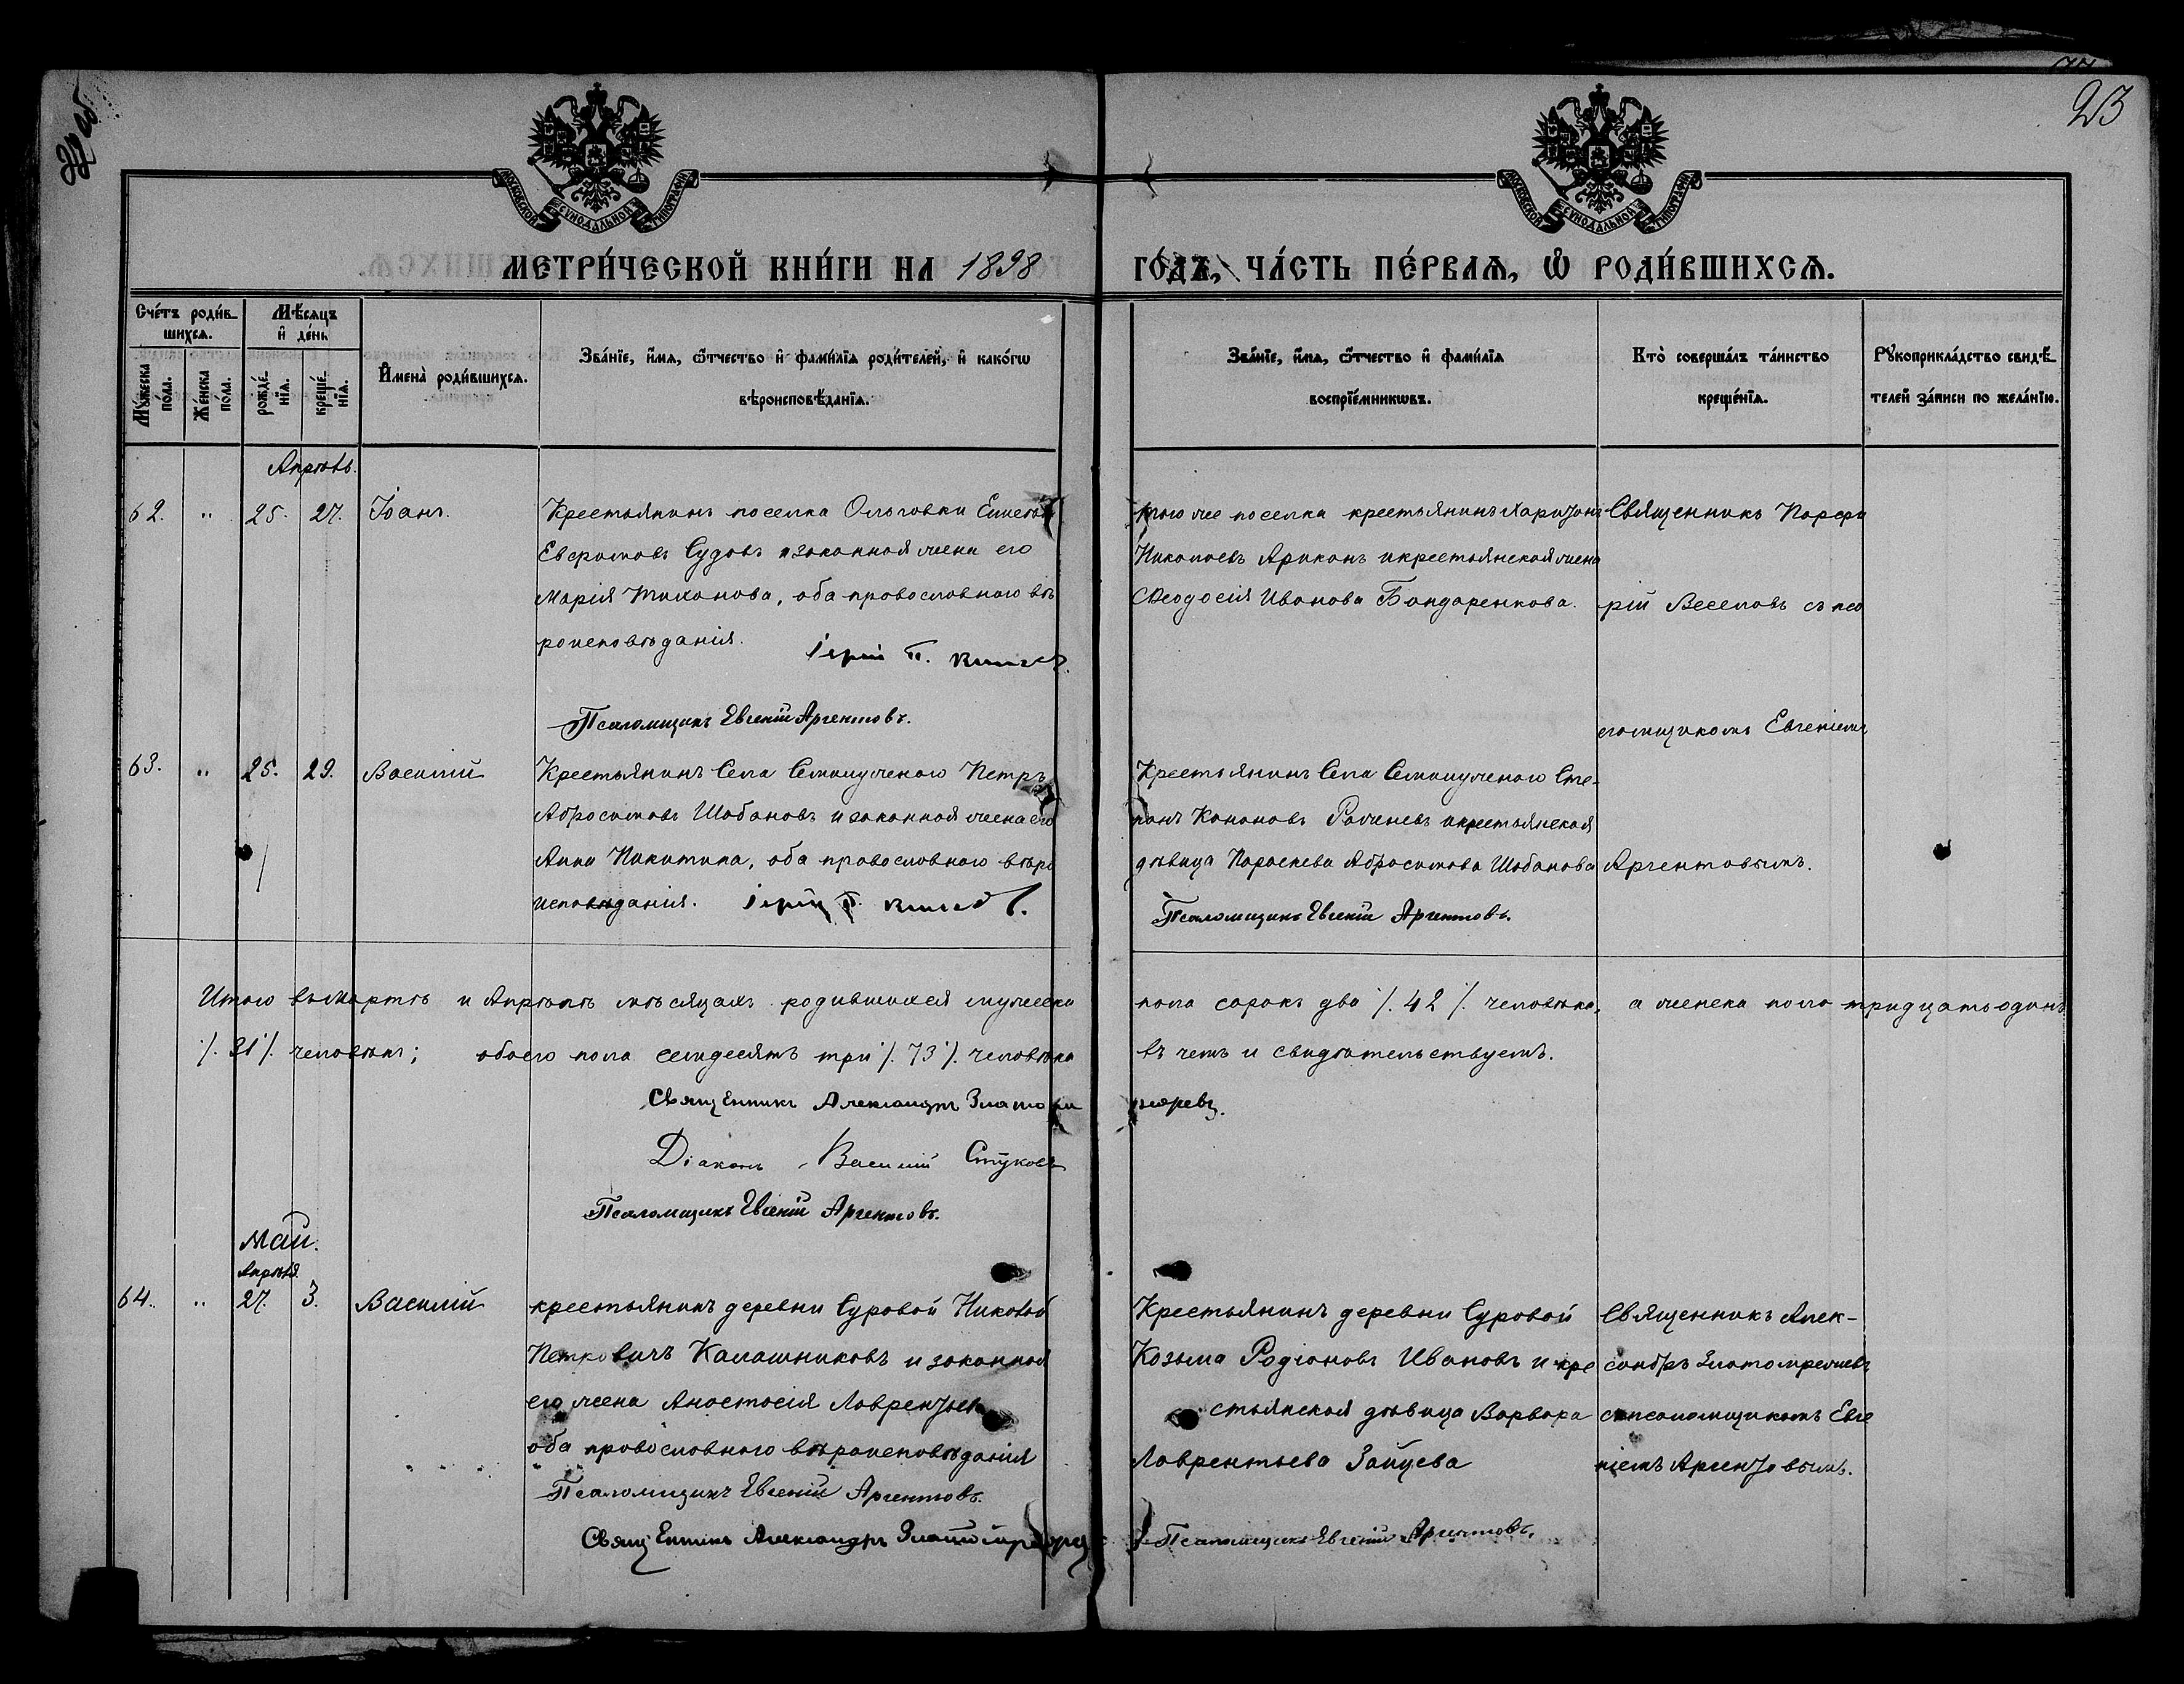 23
МОСКОВСКОЙ СѴНОДАЛЬНОЙ ТИПОГРАФІИ
МОСКОВСКОЙ СѴНОДАЛЬНОЙ ТИПОГРАФІИ
МЕТРИ́ЧЕСКОЙ КНИ́ГИ НА 1898 ГО́ДЪ, ЧА́СТЬ ПЕ́РВАѦ, Ѽ РОДИ́ВШИХСѦ.
Сче́тъ роди́в-
шихсѧ.
Мꙋ́жеска по́ла.
Же́нска по́ла.
Мѣ́сѧцъ
и҆ де́нь
рожде́-
нїѧ.
креще́-
нїѧ.
И҆мена̀ роди́вшихсѧ.
Зва́нїе, и҆́мѧ, ѻ҆́тчество и҆ фами́лїѧ роди́телей, и҆ како́гѡ
вѣроисповѣ́данїѧ.
Зва́нїе, и҆́мѧ, ѻ҆́тчество и҆ фами́лїѧ
воспрїе́мникѡвъ.
Кто̀ соверша́лъ та́инство
креще́нїѧ.
Рꙋкоприкла́дство свидѣ́-
телей за́писи по жела́нїю.
Апрѣль.
62. „ 25. 27. Іоанъ.
Крестьянинъ поселка Ольговки
Евфимовъ Судовъ и законная жена его
Марія Тихонова, оба православнаго вѣ
роисповѣданія.
Іерей П.
Псаломщикъ Евгеній Аргентовъ.
того же поселка крестьянинъ Харитонъ
Николаевъ и крестьянская жена
Ѳеодосія Иванова Бондаренкова.
Священникъ Порфи
рій Веселовъ съ пса
ломщикомъ Евгеніемъ
Аргентовымъ.
63. „ 25. 29. Василій
Крестьянинъ Села Семиозернаго Петръ
Абросимовъ Шабановъ и законная жена его
Анна Никитина, оба православнаго вѣро
исповѣданія. Іерей П.
Крестьянинъ Села Семиозернаго Сте-
панъ Кононовъ и крестьянская
дѣвица Параскева Абросимова Шабанова
Псаломщикъ Евгеній Аргентовъ.
Итого въ Мартѣ и Апрѣлѣ мѣсяцахъ родившихся мужеска пола сорокъ два ·/. 42 ·/. человѣка, а женска пола тридцать одинъ
·/. 31 ·/. человѣкъ; обоего пола семдесятъ три ·/. 73 ·/. человѣка въ чемъ и свидѣтельствуемъ.
Священникъ Александръ
Діаконъ Василій Стуковъ
Псаломщикъ Евгеній Аргентовъ.
Май.
Апрѣля
64. „ 27. 3. Василій
крестьянинъ деревни Суровой Николай
Петровичъ Калашниковъ и законная
его жена Анастасія Лаврентьева
оба православнаго вѣроисповѣданія
Псаломщикъ Евгеній Аргентовъ.
Священникъ Александръ
Крестьянинъ деревни Суровой
Козьма Родіоновъ Ивановъ и кре
стьянская дѣвица Варвара
Лаврентьева Зайцева
Псаломщикъ Евгеній Аргентовъ.
Священникъ Алек-
сандръ
съ псаломщикомъ Евге
ніемъ Аргентовымъ.